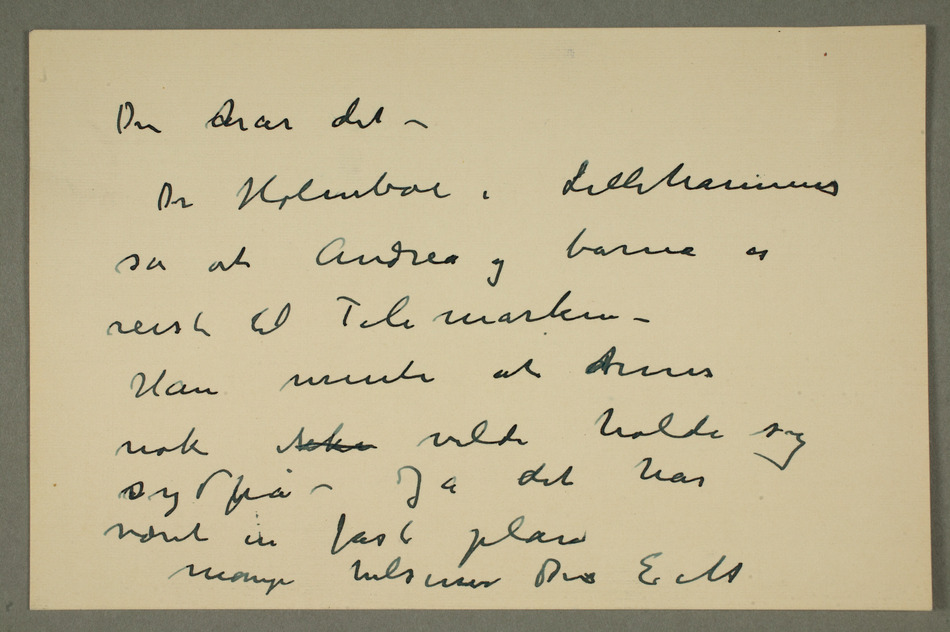 Du har det –
Dr Holmboe i Lillehammer
sa at Andrea og barna er
reist til Telemarken –
Han mente at
nok ikke vilde holde sig
syd på – Ja det har
været en fast plan
mange hilsener Din E M